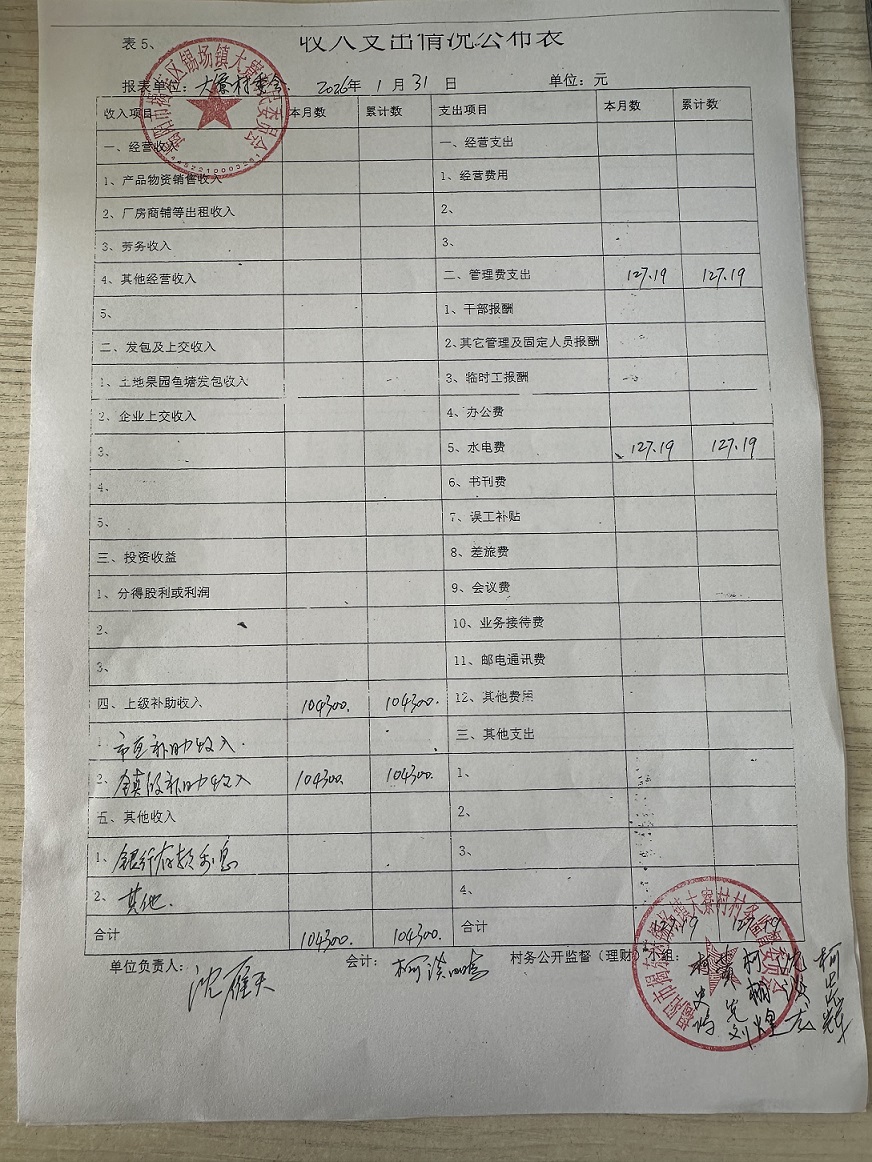 表5、 收入支出情况公布表
报表单位：大寮村委会 2026年 1月31日 单位：元
收入项目 本月数 累计数 支出项目 本月数 累计数
一、经营收入 一、经营支出
1、产品物资销售收入 1、经营费用
2、厂房商铺等出租收入 2、
3、劳务收入 3、
4、其他经营收入 二、管理费支出 127.19 127.19
5、 1、干部报酬
二、发包及上交收入 2、其它管理及固定人员报酬
1、土地果园鱼塘发包收入 3、临时工报酬
2、企业上交收入 4、办公费
3、 5、水电费 127.19 127.19
4、 6、书刊费
5、 7、误工补贴
三、投资收益 8、差旅费
1、分得股利或利润 9、会议费
2、 10、业务接待费
3、 11、邮电通讯费
四、上级补助收入 104300. 104300. 12、其他费用
市区补助收入. 三、其他支出
2、镇级补助收入 104300. 104300. 1、
五、其他收入 2、
1、银行存款利息 3、
2、其他. 4、
合计 104300. 104300. 合计 127.19 127.19
单位负责人： 沈雁天 会计： 柯 村务公开监督（理财）小组：